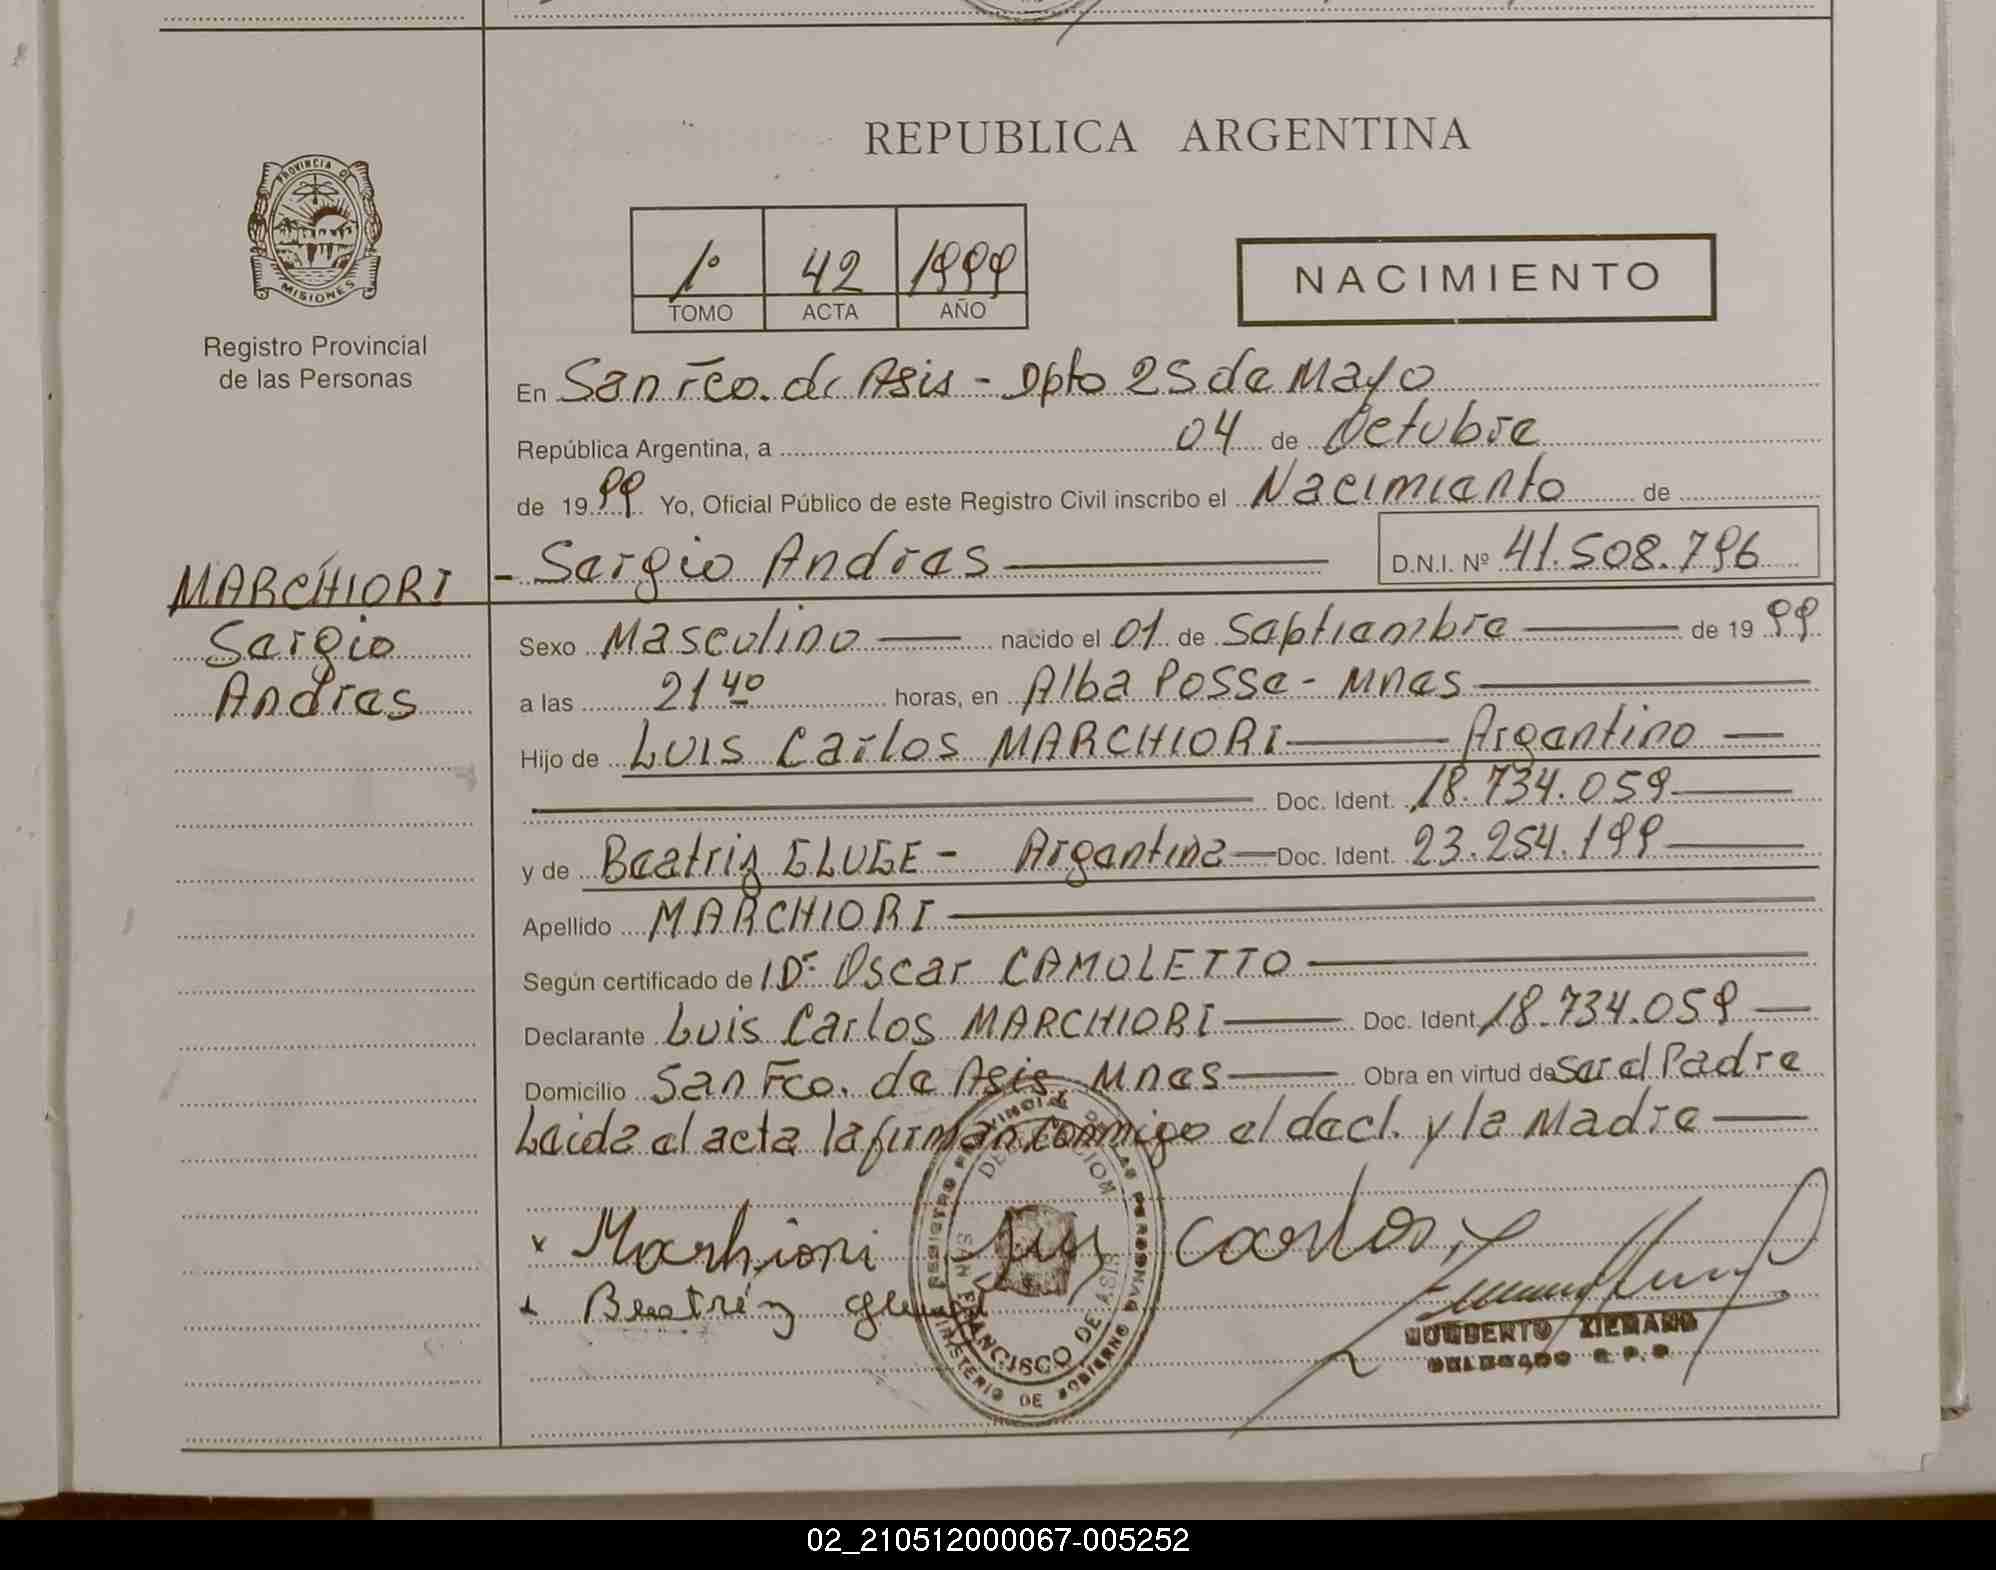 REPUBLICA ARGENTINA
PROVINCIA DE
MISIONES
Registro Provincial
de las Personas
1º 42 1999
TOMO ACTA AÑO
NACIMIENTO
En San Fco. de Asis - Dpto 25 de Mayo
República Argentina, a 04 de Octubre
de 1999 Yo, Oficial Público de este Registro Civil inscribo el Nacimiento de
- Sergio Andres D.N.I. Nº 41.508.796
MARCHIORI
Sergio
Andres
Sexo Masculino nacido el 01 de Septiembre de 1999
a las 21 40 horas, en Alba Posse - Mnes
Hijo de Luis Carlos MARCHIORI Argentino
Doc. Ident. 18.734.059
y de Beatriz GLUGE - Argentina Doc. Ident. 23.254.199
Apellido MARCHIORI
Según certificado de Dr. Oscar CAMOLETTO
Declarante Luis Carlos MARCHIORI Doc. Ident. 18.734.059
Domicilio San Fco. de Asis, Mnes Obra en virtud de ser el Padre
Leida el acta la firman conmigo el decl. y la Madre
x Marchiori Luis Carlos
x Beatríz
REGISTRO PROVINCIAL DE LAS PERSONAS
DELEGACION
SAN FRANCISCO DE ASIS
MINISTERIO DE GOBIERNO
HUMBERTO
DELEGADO R.P.P.
02_210512000067-005252